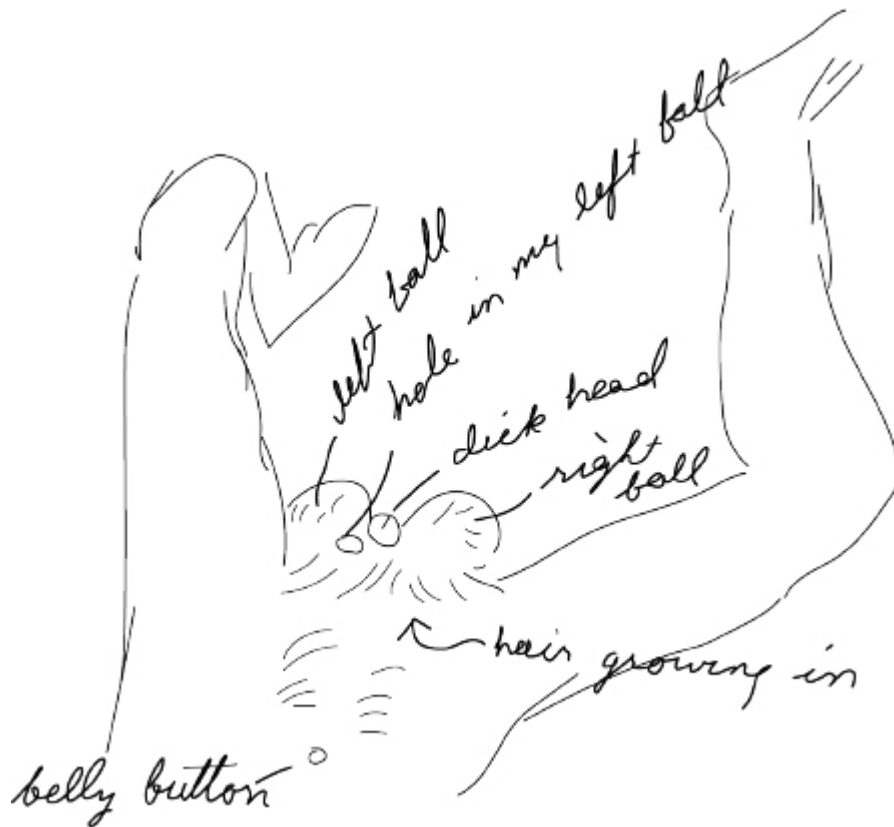 left ball
hole in my left ball
dick head
right
ball
hair growing in
belly button